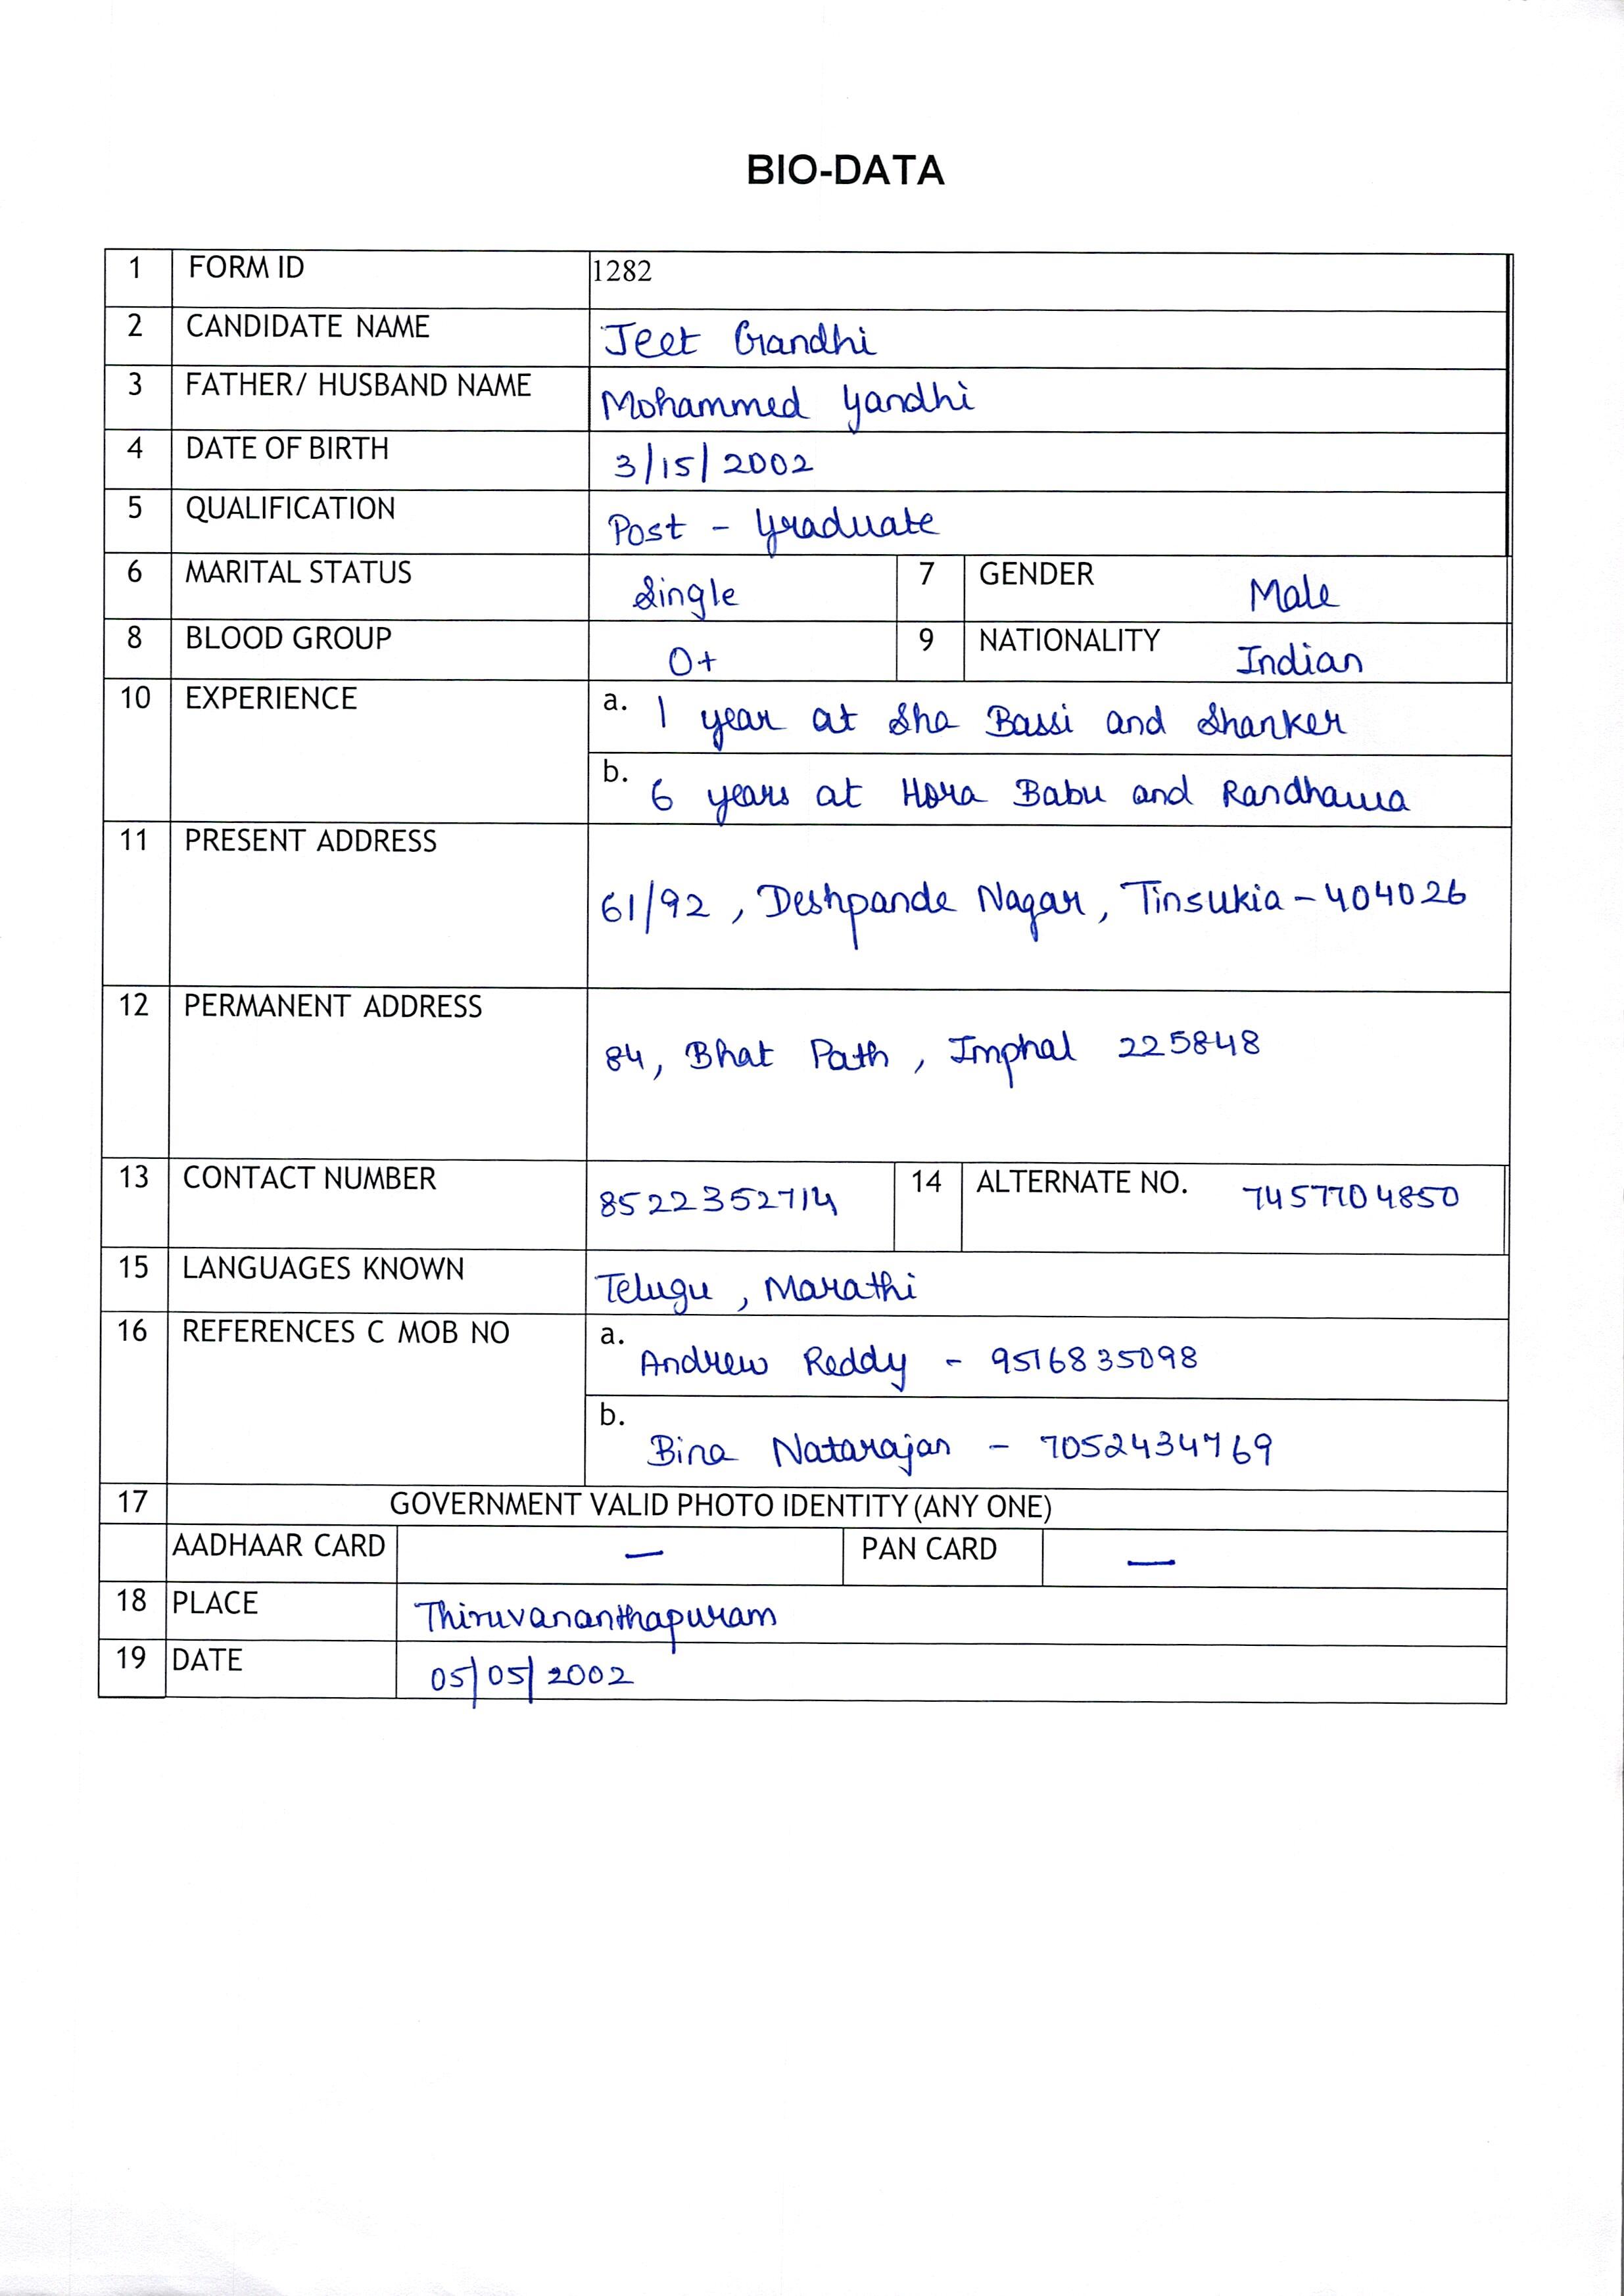 BIO-DATA
1 FORM ID 1282
2 CANDIDATE NAME Jeet Gandhi
3 FATHER/ HUSBAND NAME Mohammed Gandhi
4 DATE OF BIRTH 3/15/2002
5 QUALIFICATION Post - Graduate
6 MARITAL STATUS Single 7 GENDER Male
8 BLOOD GROUP O+ 9 NATIONALITY Indian
10 EXPERIENCE a. 1 year at Sha Bassi and Shanker
b. 6 years at Hora Babu and Randhawa
11 PRESENT ADDRESS
61/92, Deshpande Nagar, Tinsukia - 404026
12 PERMANENT ADDRESS
84, Bhat Path, Imphal 225848
13 CONTACT NUMBER 8522352714 14 ALTERNATE NO. 7457704850
15 LANGUAGES KNOWN Telugu, Marathi
16 REFERENCES C MOB NO a. Andrew Reddy - 9516835098
b. Bina Natarajan - 7052434769
17 GOVERNMENT VALID PHOTO IDENTITY (ANY ONE)
AADHAAR CARD — PAN CARD —
18 PLACE Thiruvananthapuram
19 DATE 05/05/2002